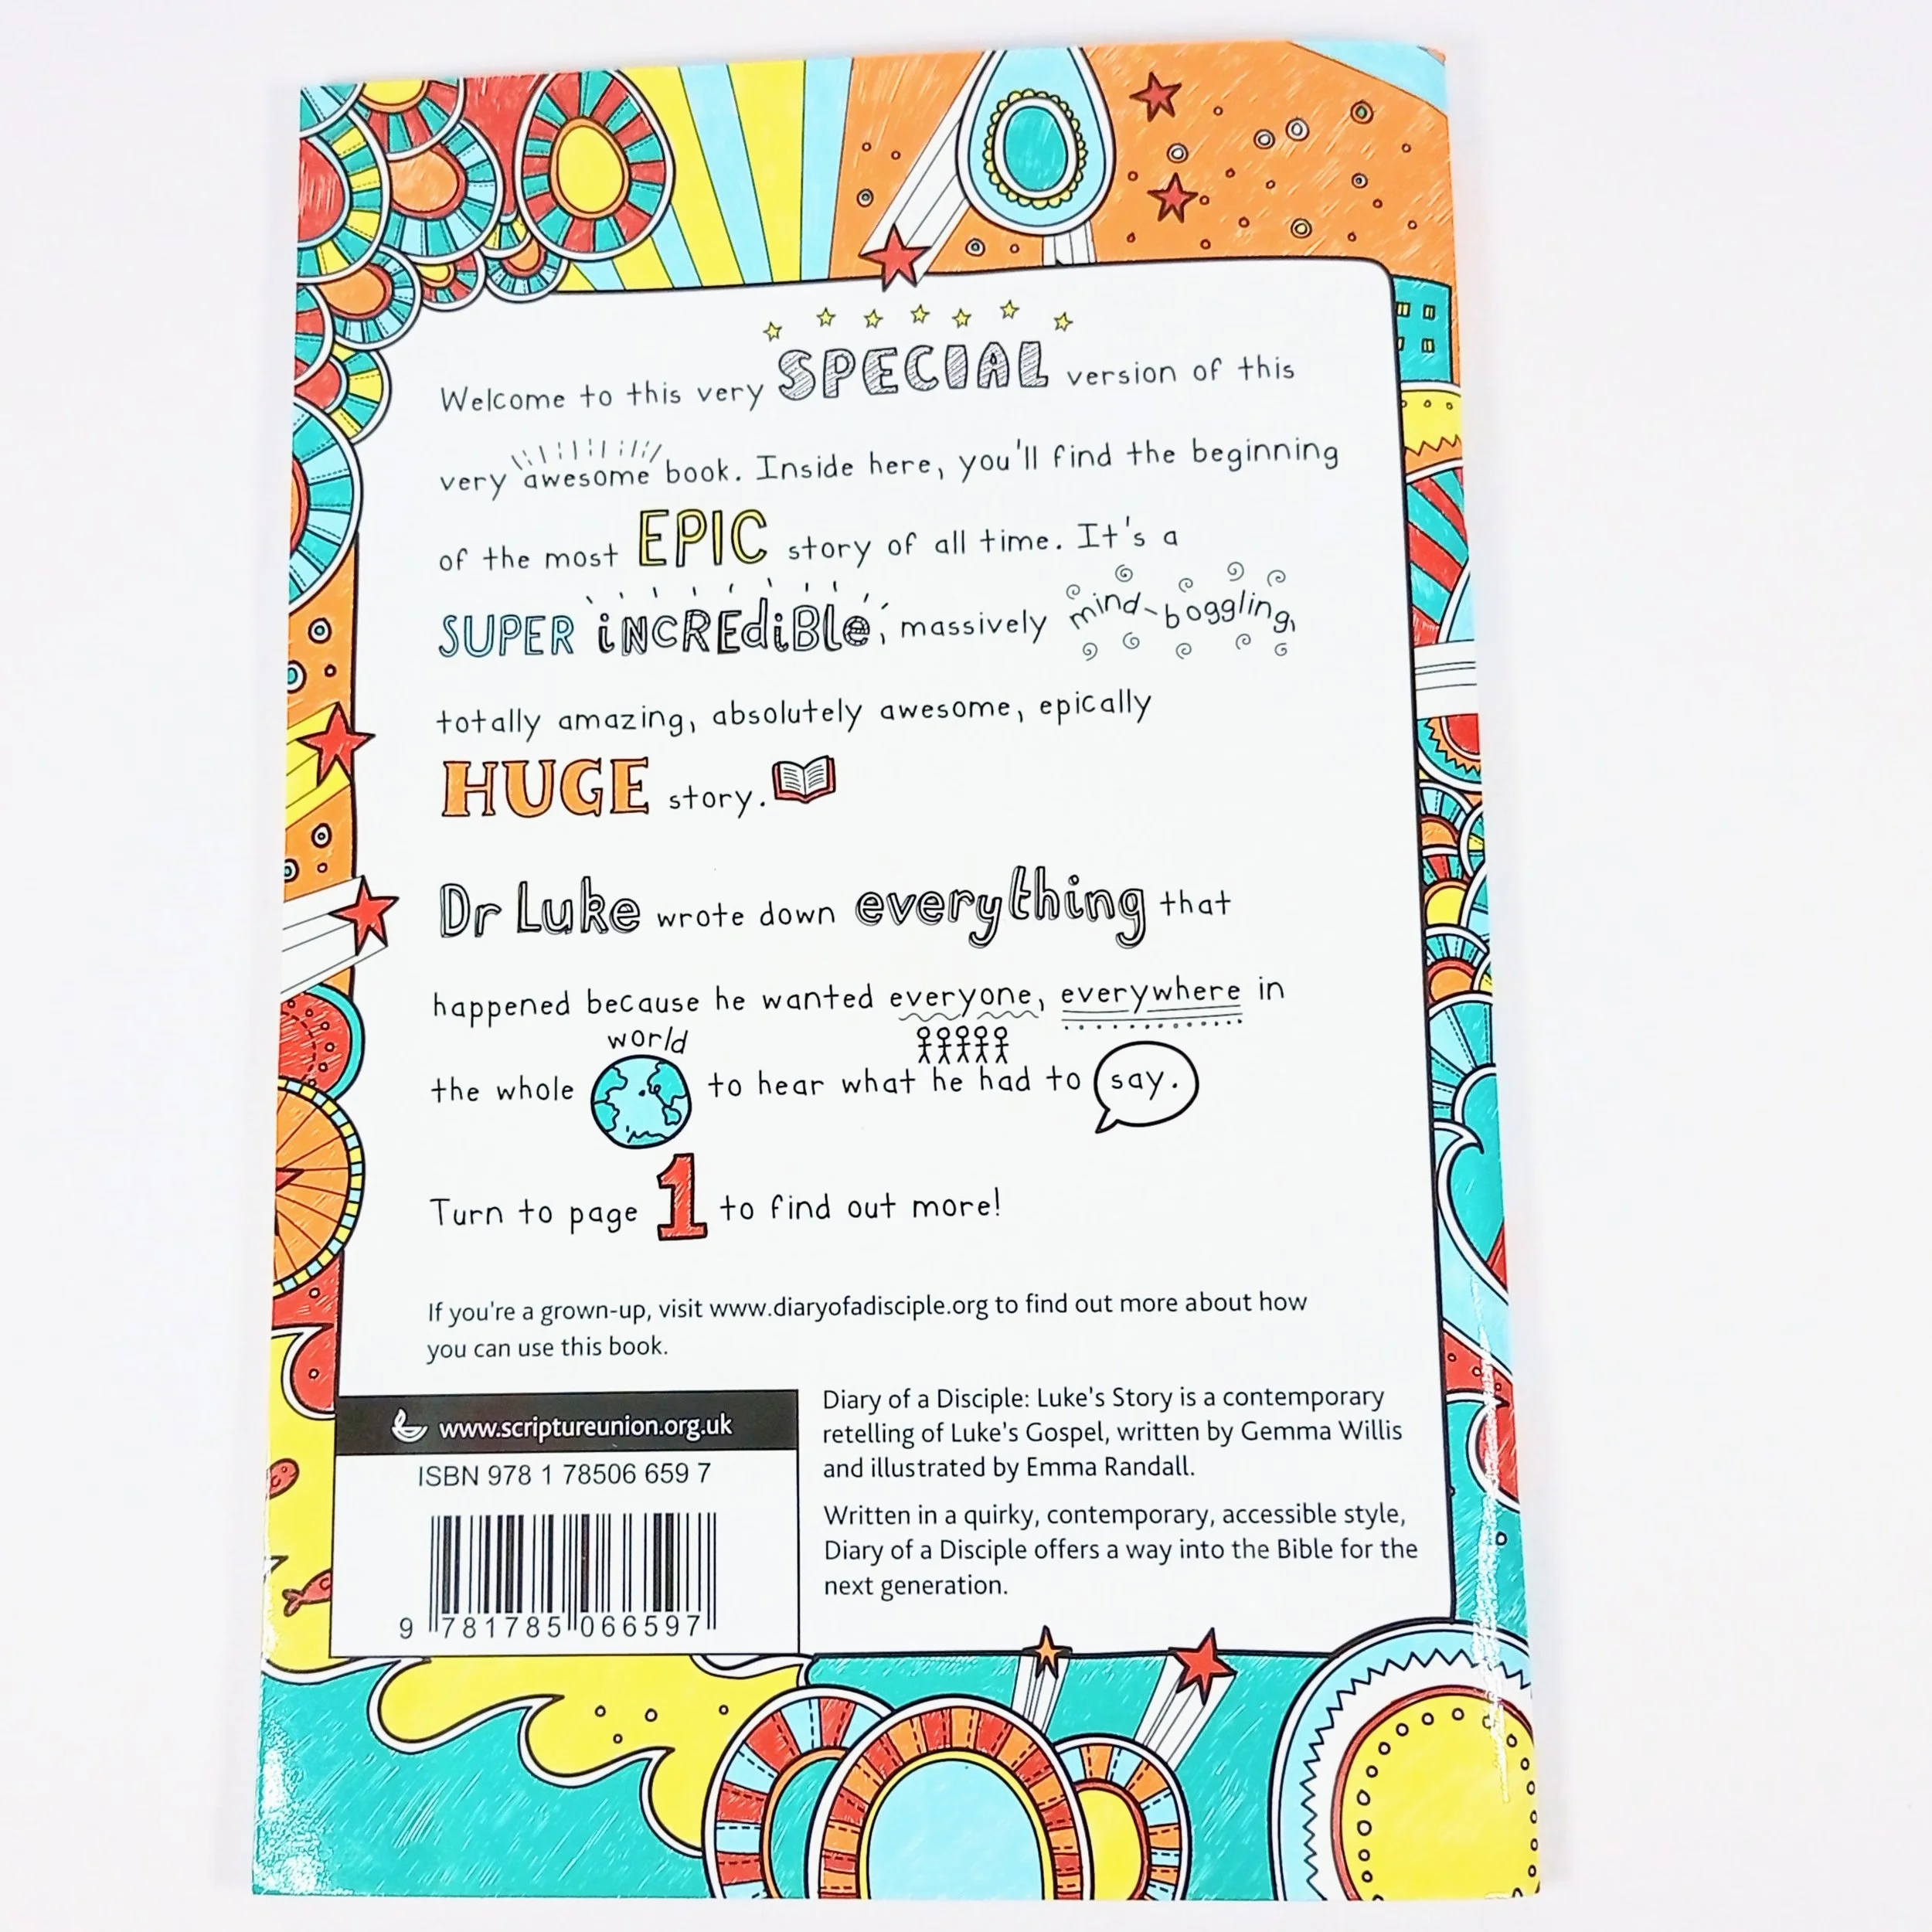 Welcome to this very SPECIAL version of this
very awesome book. Inside here, you'll find the beginning
of the most EPIC story of all time. It's a
SUPER iNCREdiBle, massively mind-boggling,
totally amazing, absolutely awesome, epically
HUGE story.
Dr Luke wrote down everything that
happened because he wanted everyone, everywhere in
world
the whole to hear what he had to say.
Turn to page 1 to find out more!
If you're a grown-up, visit www.diaryofadisciple.org to find out more about how
you can use this book.
www.scriptureunion.org.uk
ISBN 978 1 78506 659 7
9 781785 066597
Diary of a Disciple: Luke's Story is a contemporary
retelling of Luke's Gospel, written by Gemma Willis
and illustrated by Emma Randall.
Written in a quirky, contemporary, accessible style,
Diary of a Disciple offers a way into the Bible for the
next generation.